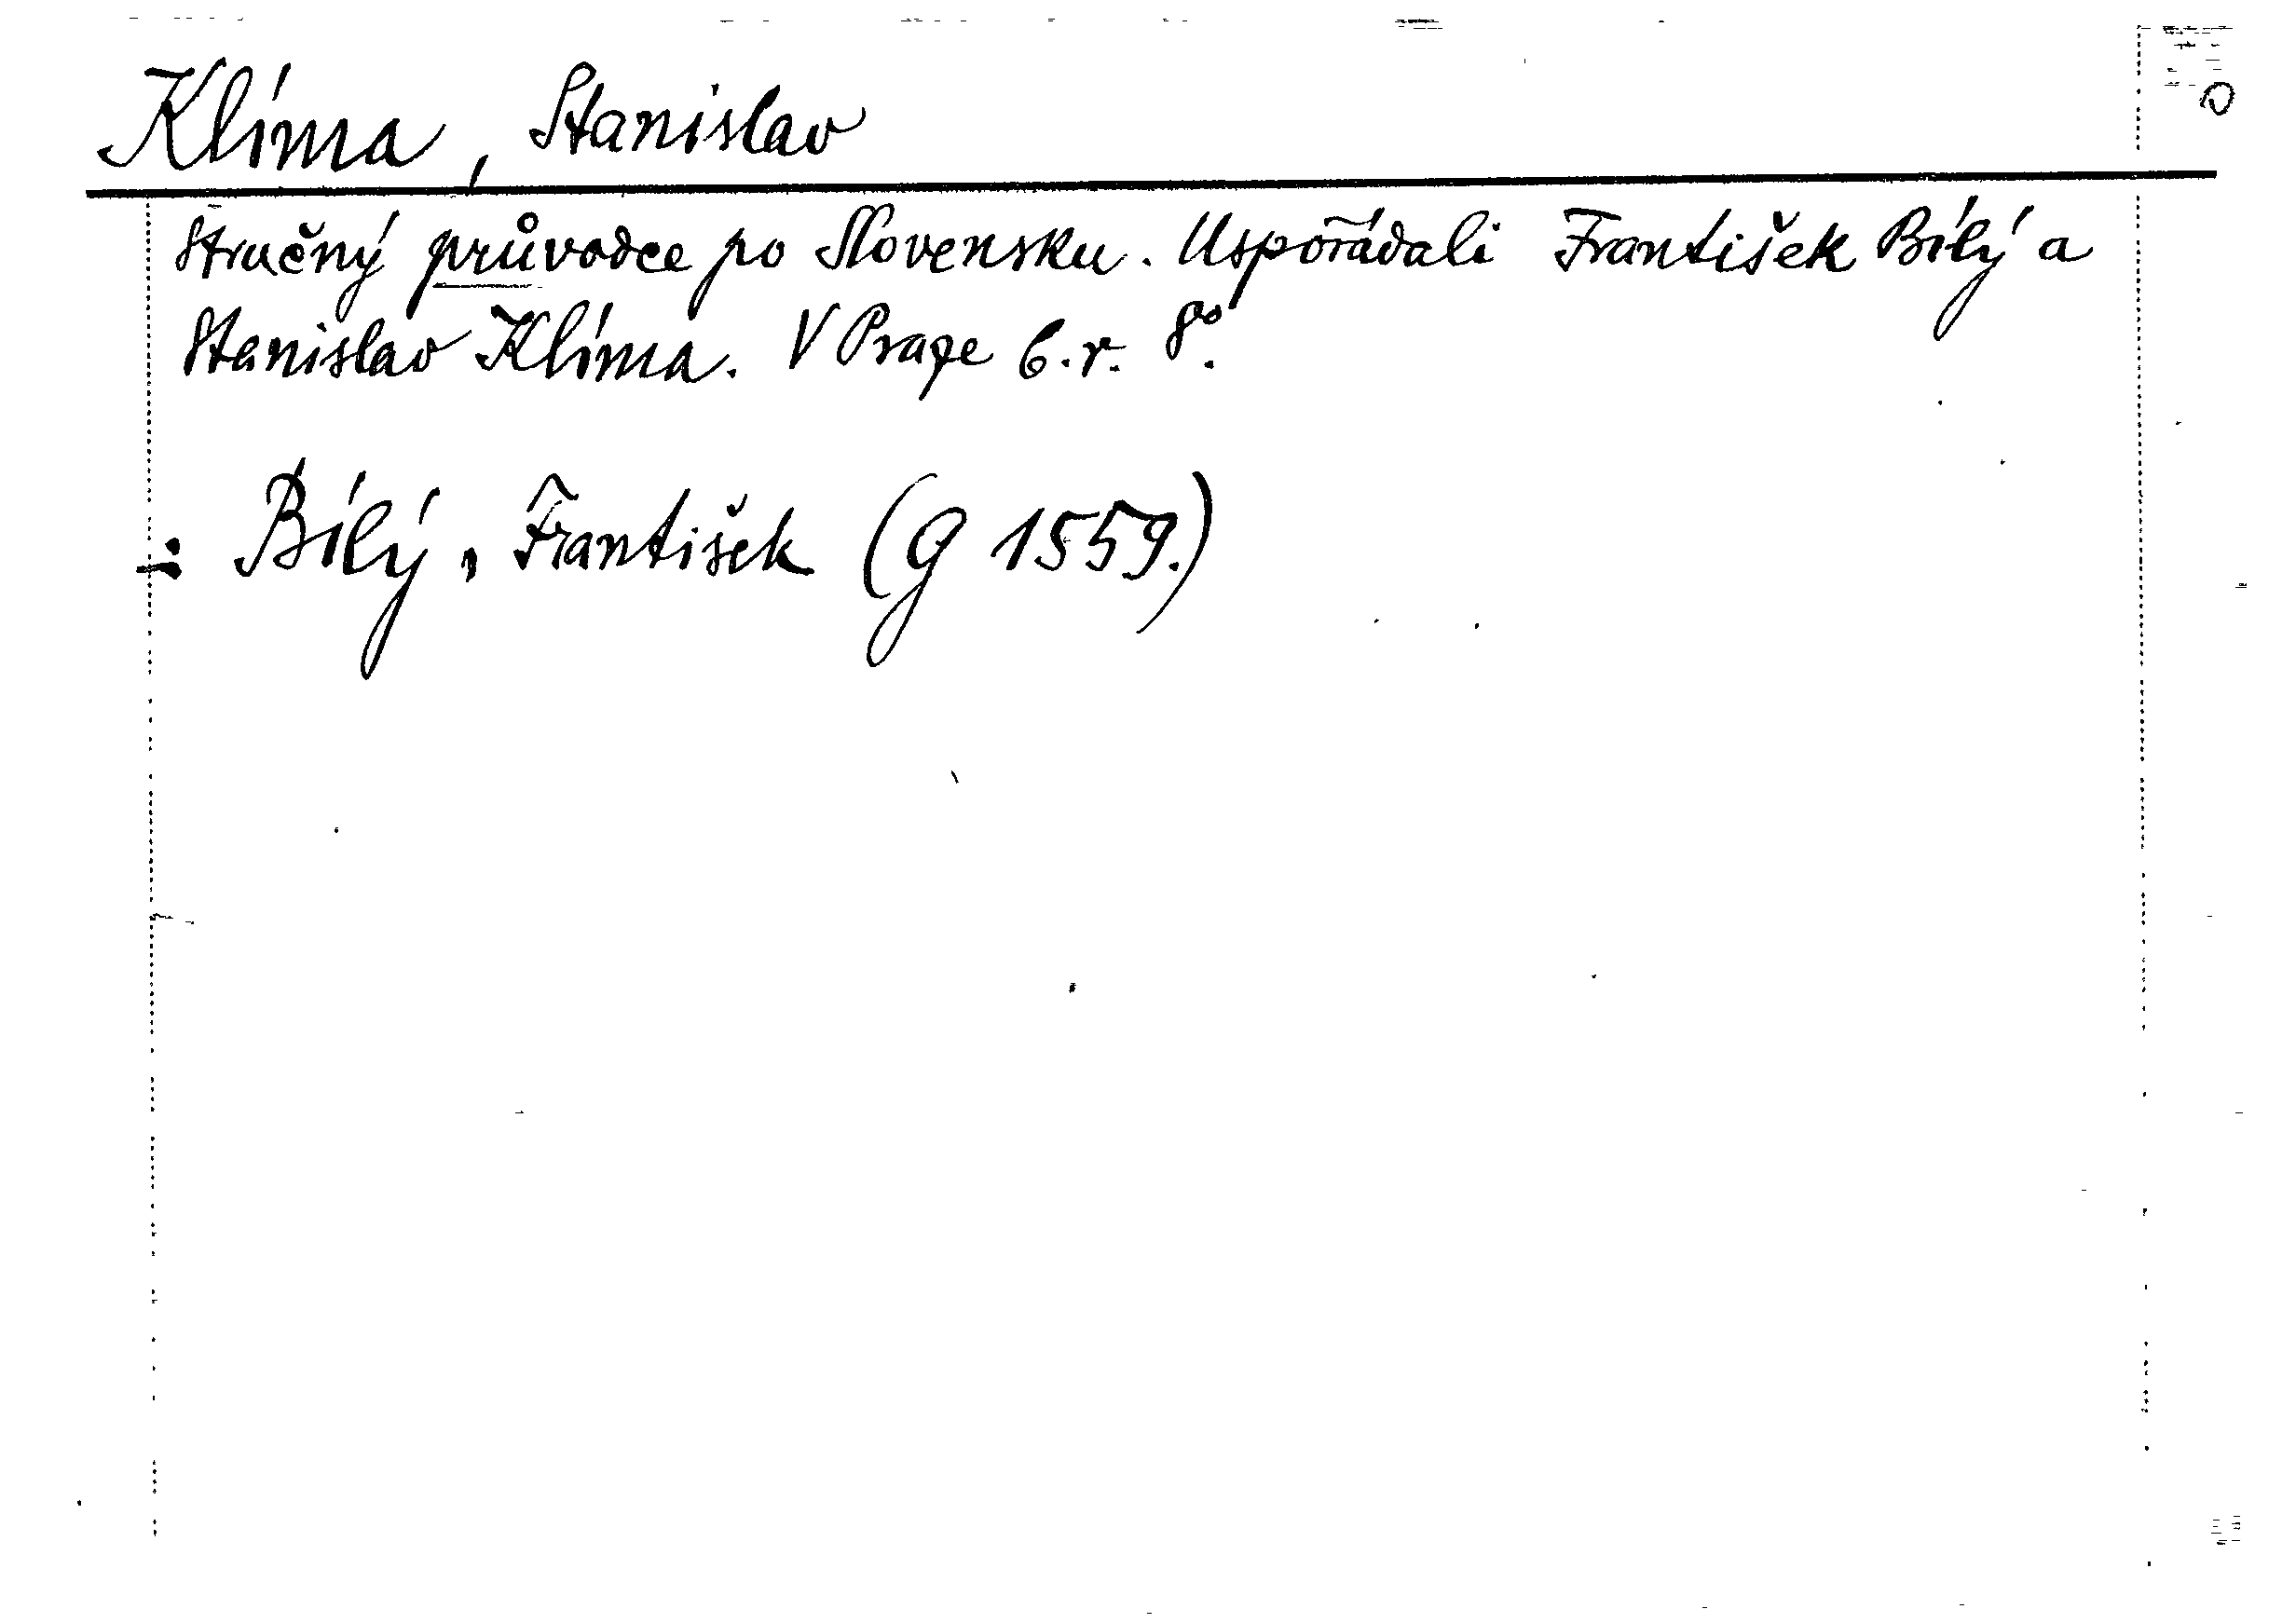 Klíma, Stanislav
Stručný průvodce po Slovensku. Uspořádali František Bílý a
Stanislav Klíma. V Praze b.r. 8°.
: Bílý, František (G 1559.)